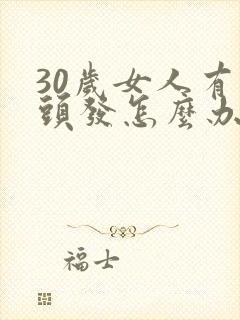 30歲女人有
頭發怎麼办
福士